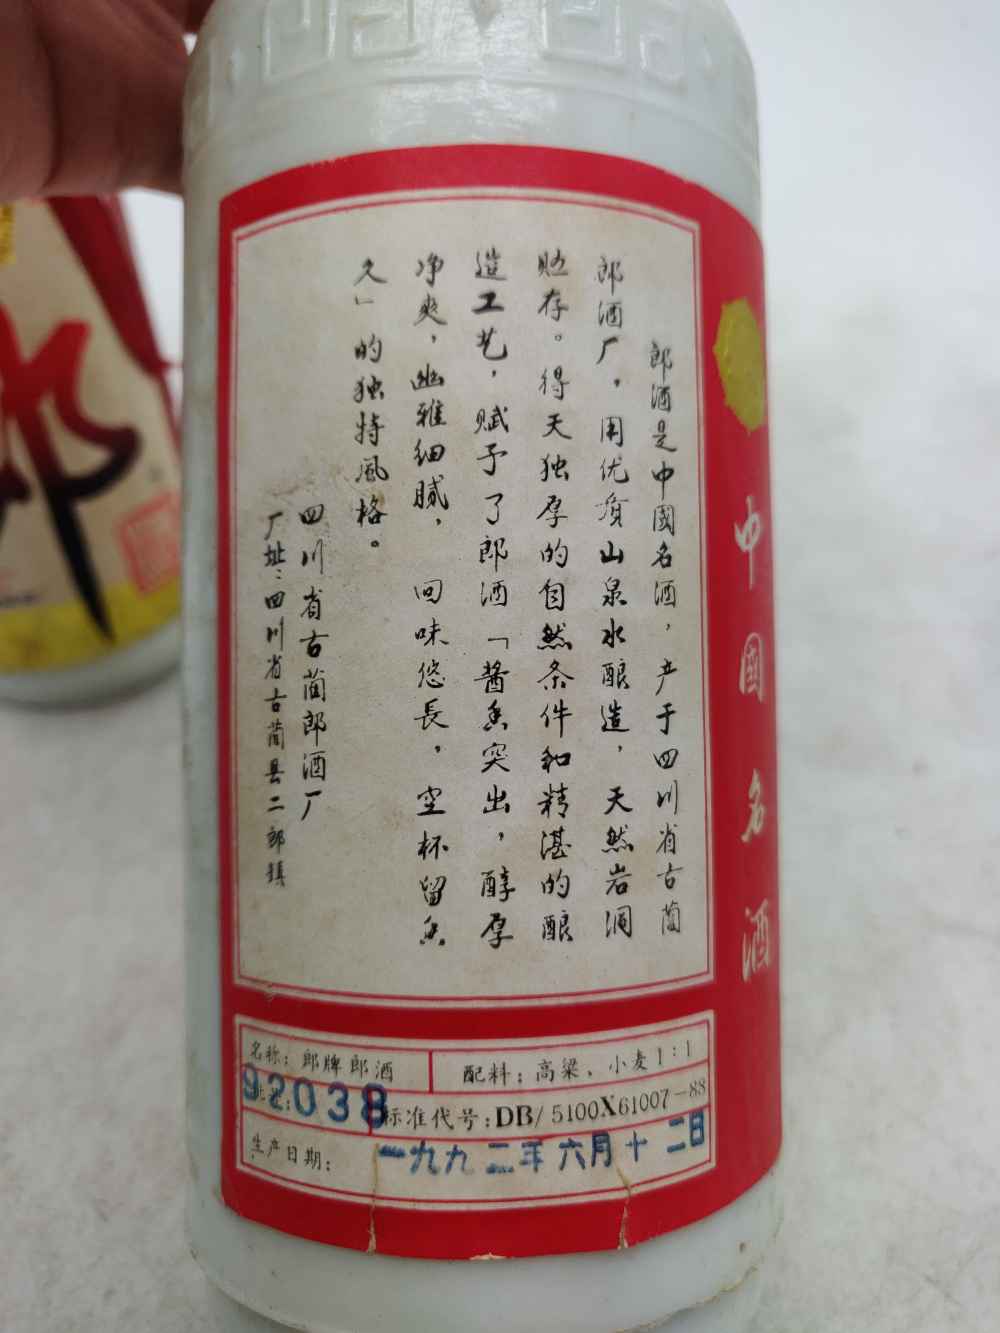 郎酒是中國名酒，产于四川省古蔺
郎酒厂，用优质山泉水酿造，天然岩洞
贮存。得天独厚的自然条件和精湛的酿
造工艺，赋予了郎酒「酱香突出，醇厚
净爽，幽雅细腻，回味悠長，空杯留香
久」的独特風格。
四川省古蔺郎酒厂
厂址：四川省古蔺县二郎鎮
中國名酒
名称：郎牌郎酒
配料：高粱、小麦1:1
92038
标准代号：DB/5100X61007-88
生产日期：一九九二年六月十二日
郎